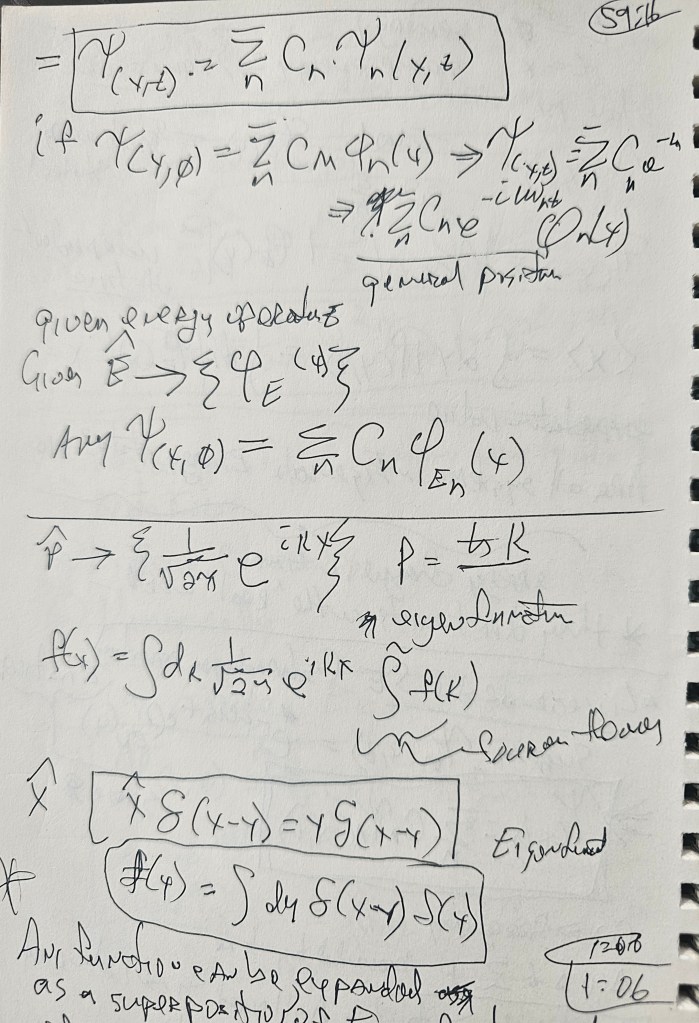 59:16
= Ψ(x,t) = Σ_n C_n · Ψ_n(x,t)
if Ψ(x,0) = Σ_n C_n φ_n(x) ⇒ Ψ(x,t) = Σ_n C_n e^-i
⇒ Σ_n C_n e^{-iω_n t} φ_n(x)
general
given energy operator
Given Ê → { φ_E (x) }
Any Ψ(x,0) = Σ_n C_n φ_{E_n}(x)
p̂ → { 1/√2π e^{ikx} } P = ħK
eigenfunction
f(x) = ∫ dk 1/√2π e^{ikx} f̃(k)
x̂
x̂ δ(x-y) = y δ(x-y)
f(x) = ∫ dy δ(x-y) f(y)
Any function can be expanded
as a superposition of
1:06